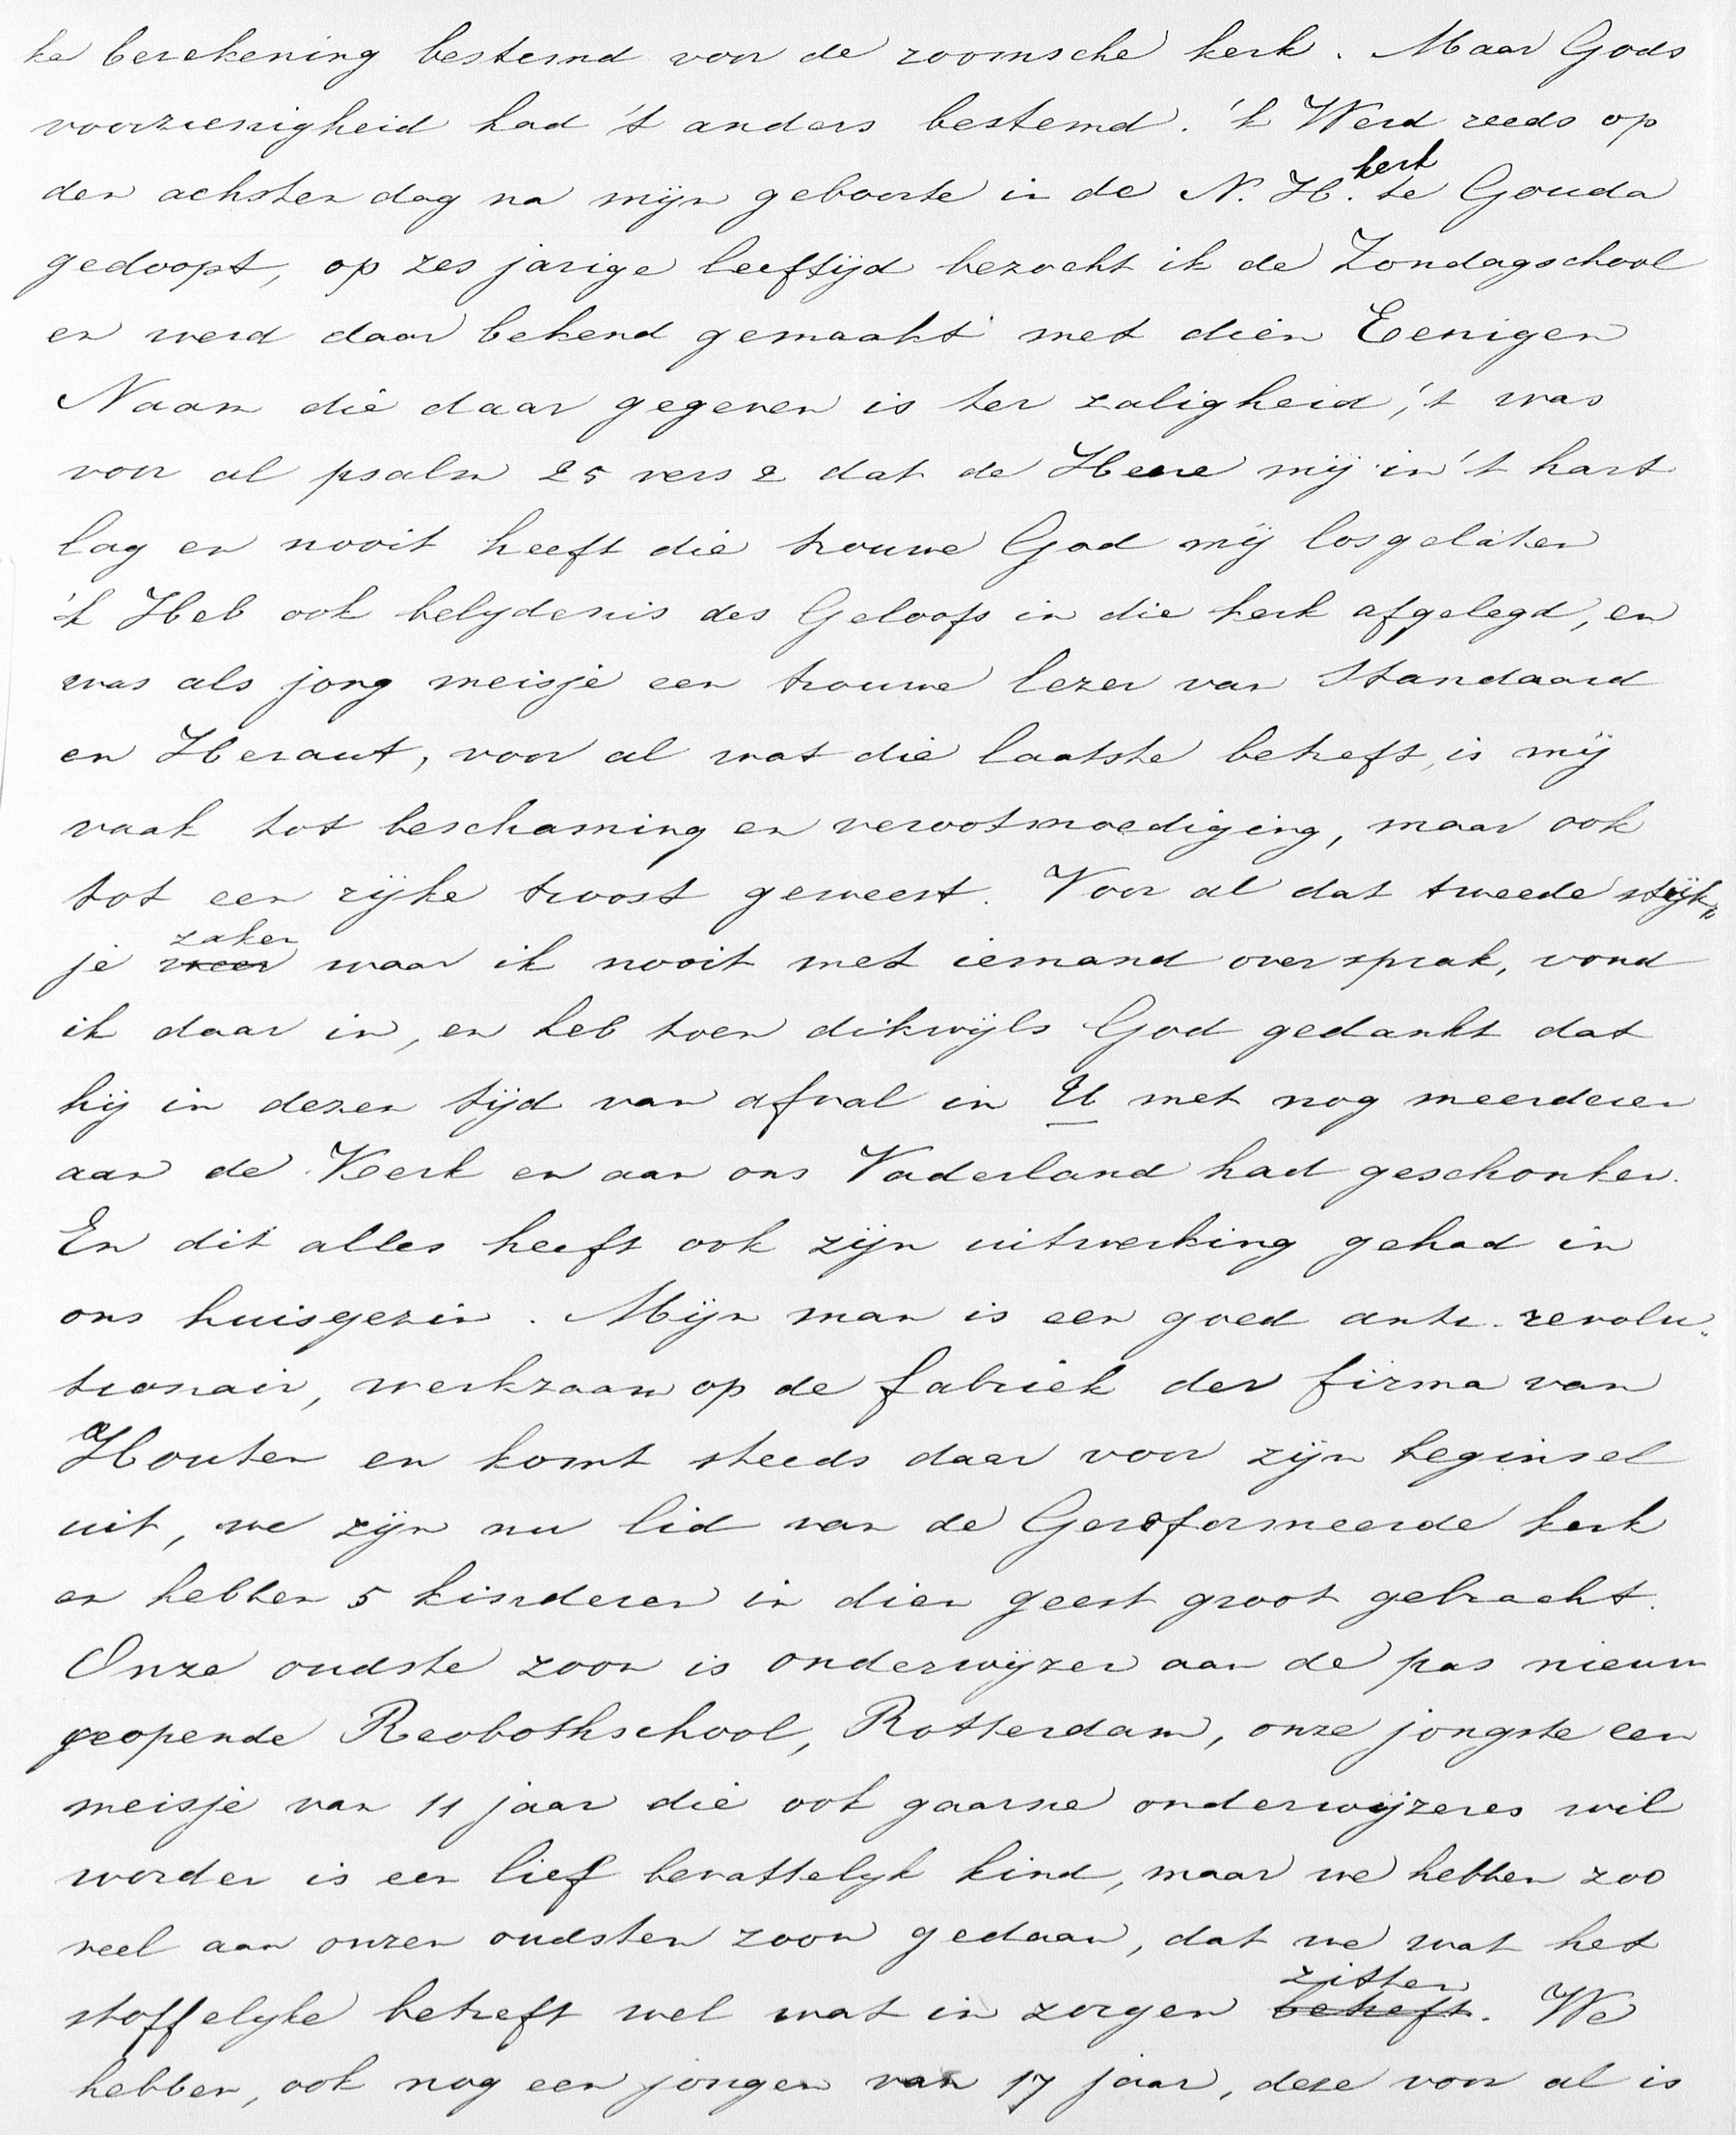 ke berekening bestemd voor de roomsche kerk. Maar Gods
voorzienigheid had 't anders bestemd. 'k Werd reeds op
den achsten dag na mijn geboorte in de N. H. kerk te Gouda
gedoopt, op zes jarige leeftijd bezocht ik de Zondagschool
en werd daar bekend gemaakt met dien Eenigen
Naam die daar gegeven is ter zaligheid, 't was
voor al psalm 25 vers 2 dat de Heere mij in 't hart
lag en nooit heeft die trouwe God mij losgelaten
'k Heb ook belydenis des Geloofs in die kerk afgelegd, en
was als jong meisje een trouwe lezer van Standaard
en Heraut, voor al wat die laatste betreft, is mij
vaak tot beschaming en verootmoediging, maar ook
tot een rijke troost geweest. Voor al dat tweede
je zaken waar ik nooit met iemand over sprak, vond
ik daar in, en heb toen dikwijls God gedankt dat
hij in dezen tijd van afval in U met nog meerderen
aan de Kerk en aan ons Vaderland had geschonken.
En dit alles heeft ook zijn uitwerking gehad in
ons huisgezin. Mijn man is een goed anti-revolu-
tionair, werkzaam op de fabriek der firma van
Houten en komt steeds daar voor zijn beginsel
uit, we zijn nu lid van de Gereformeerde kerk
en hebben 5 kinderen in dien geest groot gebracht.
Onze oudste zoon is onderwijzer aan de pas nieuw
geopende Reobothschool, Rotterdam, onze jongste een
meisje van 11 jaar die ook gaarne onderwijzeres wil
worden is een lief bevattelyk kind, maar we hebben zoo
veel aan onzen oudsten zoon gedaan, dat we wat het
stoffelyke betreft wel wat in zorgen betreft zitten. We
hebben, ook nog een jongen van 17 jaar, deze voor al is